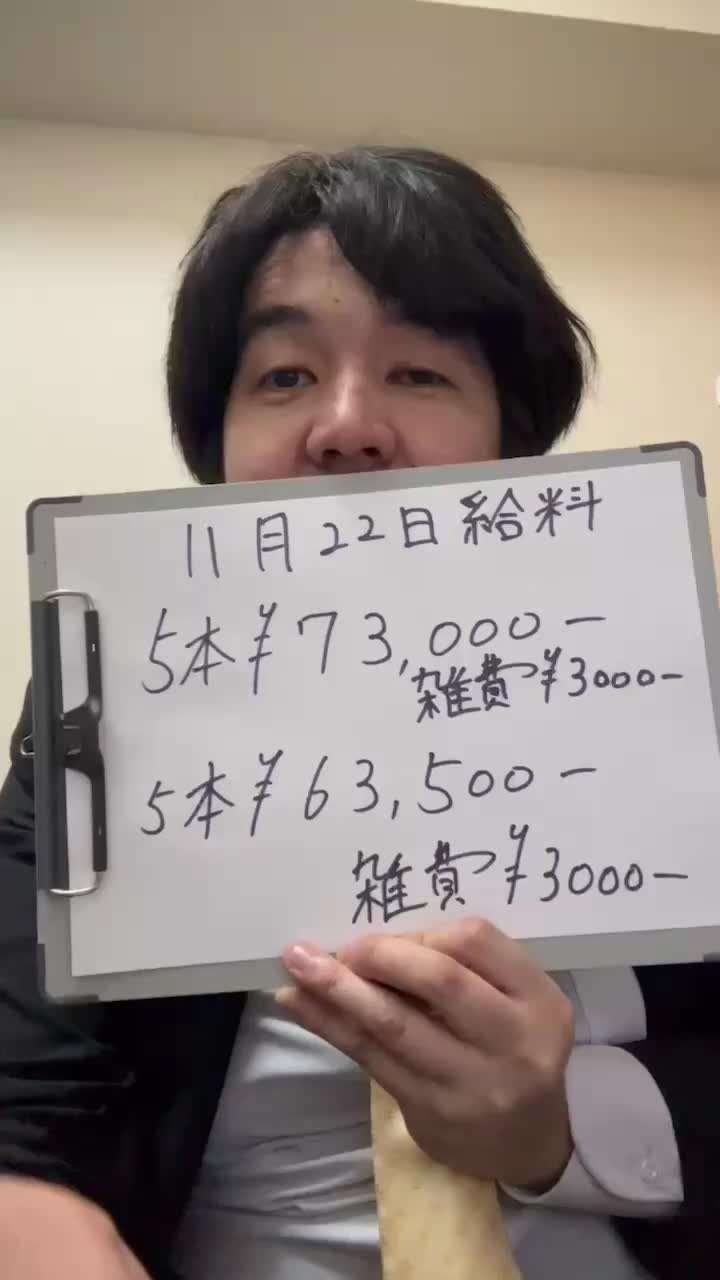 11月22日給料
5本¥73,000ー
雑費¥3000ー
5本¥63,500ー
雑費¥3000ー